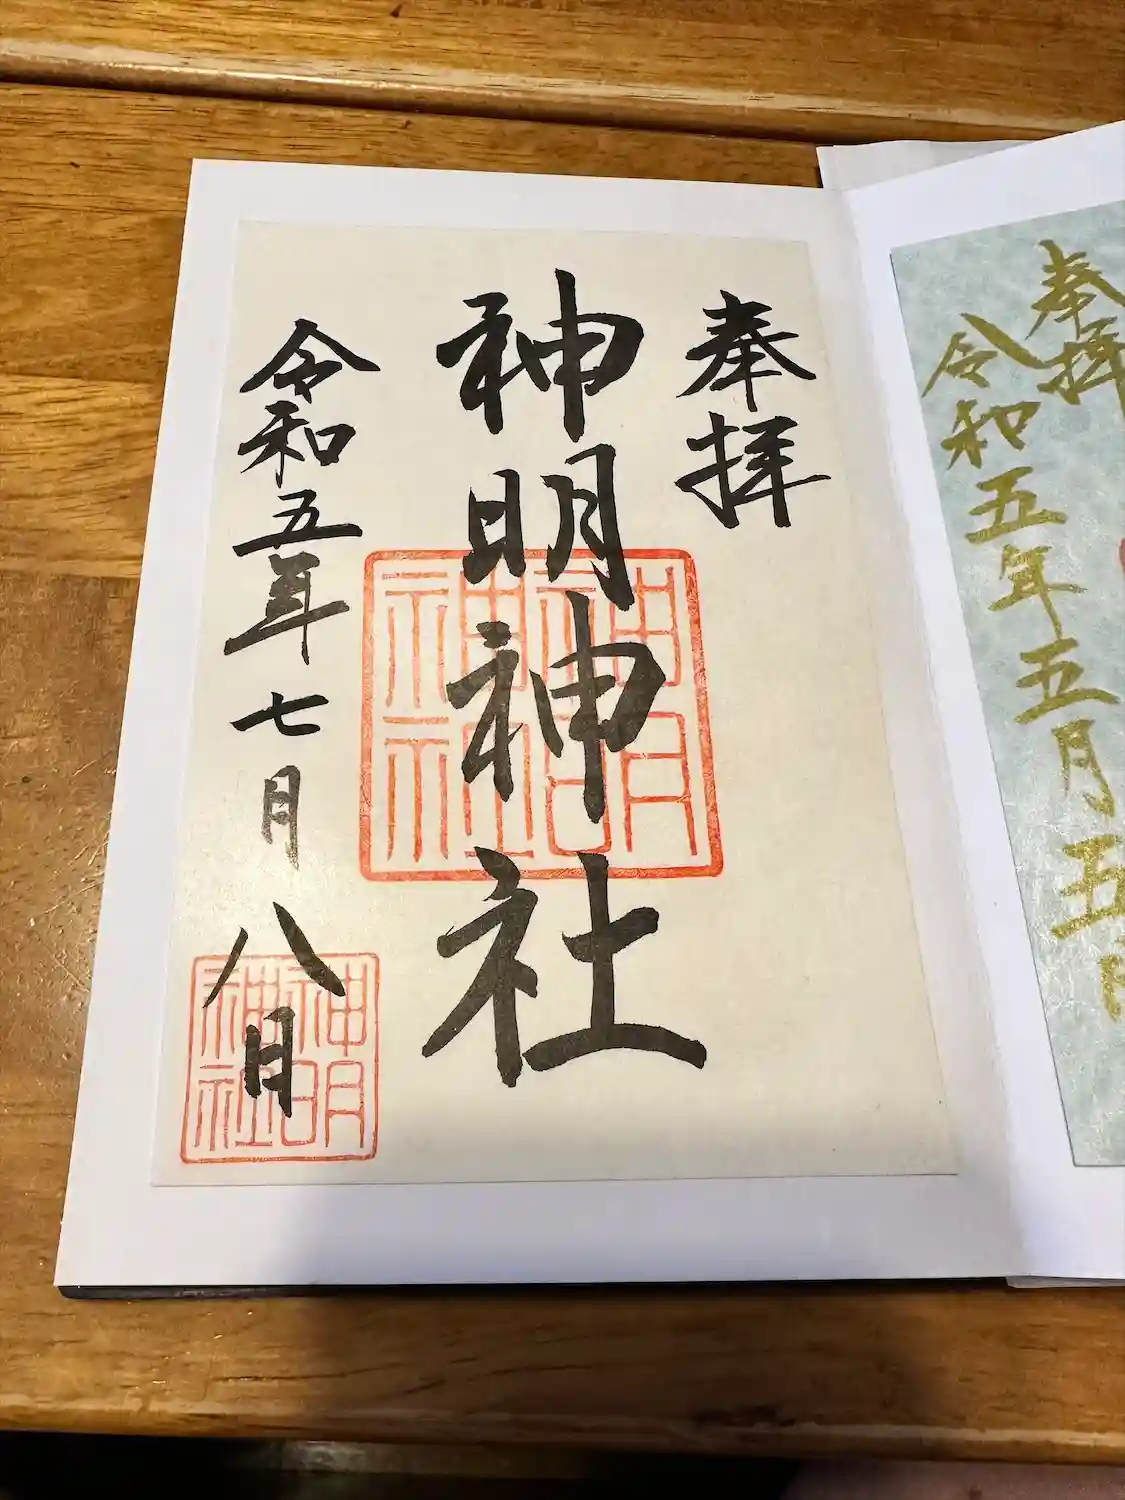 奉拝
令和五年五月五日
奉拝
神明神社
神明神社
令和五年七月八日
神明神社